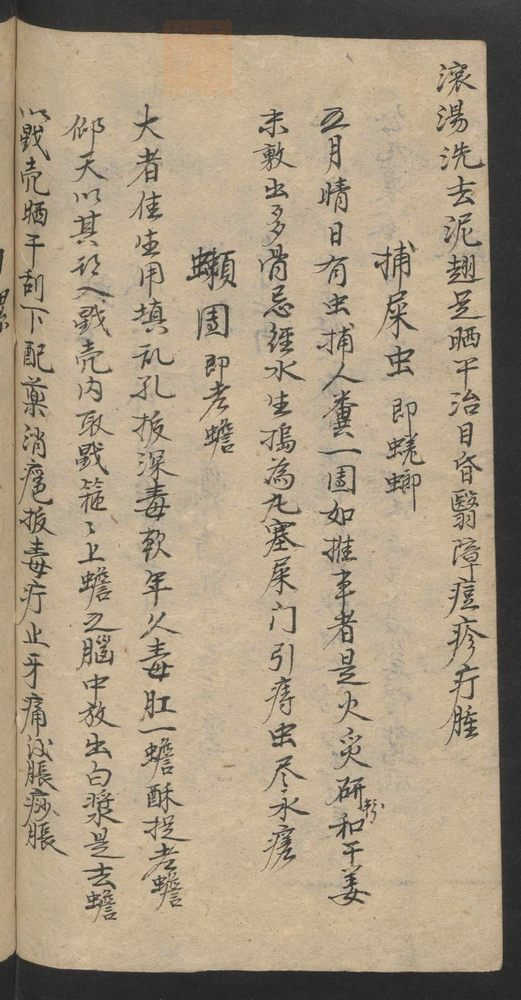 滚湯洗去泥翅足晒干治目昏翳障痘疹疔腫
捕屎虫 即蜣螂
五月晴日有虫捕人糞一团如推車者是火炙研粉和干姜
末敷出多骨忌経水生搗為丸塞屎门引痔虫尽永瘥
癩团 即老蟾
大者佳生用填乱孔扳深毒軟年久毒肛一蟾酥捉老蟾
仰天以其頭入戥壳内取戥箍〻上蟾之腦中放出白漿是去蟾
以戥壳晒干刮下配薬消瘡扳毒疗止牙痛治脹痧脹